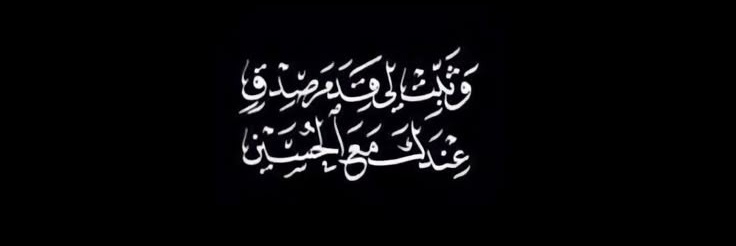 وَثَبِّت لِي قَدَمَ صِدْقٍ
عِنْدَكَ مَعَ الْحُسَيْنِ